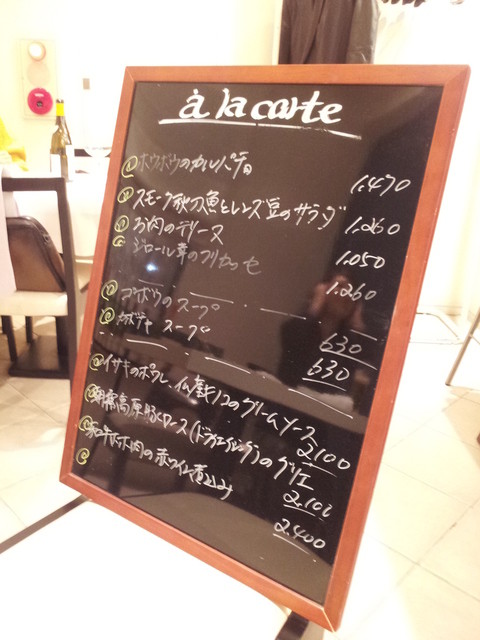 à la carte
ホウボウのカルパチョ 1.470
スモーク秋刀魚とレンズ豆のサラダ 1.260
お肉のテリーヌ 1.050
ジロール茸のフリカッセ 1.260
ゴボウのスープ 630
カボチャ スープ 630
イサキのポワレ、仏産 のクリームソース 2.100
朝霧高原豚ロース(ドライエイジング)のグリエ 2.100
和牛ホホ肉の赤ワイン煮込み 2.400